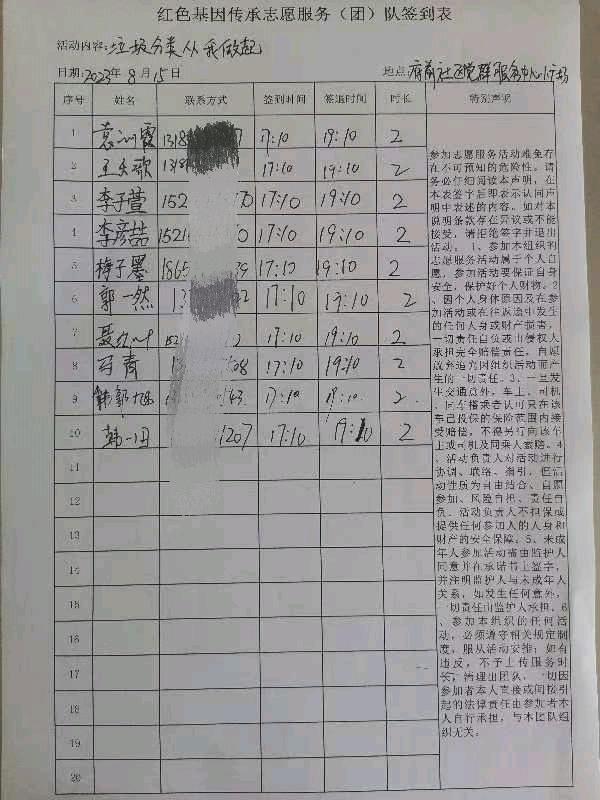 红色基因传承志愿服务（团）队签到表
活动内容：垃圾分类从我做起
日期：2023年8月15日 地点：府前社区党群服务中心小广场
序号 姓名 联系方式 签到时间 签退时间 时长 特别声明
1 131 17:10 19:10 2
2 131 17:10 19:10 2
3 李子萱 152 70 17:10 19:10 2
4 李彦喆 1521 0 17:10 19:10 2
5 梅子墨 1865 39 17:10 19:10 2
6 郭一然 13 17:10 19:10 2
7 152 17:10 19:10 2
8 马青 1 08 17:10 19:10 2
9 43 17:10 19:10 2
10 韩一 1207 17:10 19:10 2
11
12
13
14
15
16
17
18
19
20
参加志愿服务活动难免存
在不可预知的危险性。请
务必仔细阅读本声明，在
本表签字后即表示认同声
明中表述的内容。如对本
说明条款存在异议或不能
接受，请拒绝签字并退出
活动。1、参加本组织的
志愿服务活动属于个人自
愿，参加活动要保证自身
安全，保护好个人财物。2
、因个人身体原因及在参
加活动或在往返途中发生
的任何人身或财产损害，
一切责任自负或由侵权人
承担完全赔偿责任，自愿
放弃追究因组织活动而产
生的一切责任。3、一旦发
生交通意外，车主、司机
、同车搭乘者认可只在该
车已投保的保险范围内接
受赔偿，不得另行向该车
主或司机及同乘人索赔。4
、活动负责人对活动进行
协调、联络、指引，但活
动性质为自由结合、自愿
参加、风险自担、责任自
负。活动负责人不担保或
提供任何参加人的人身和
财产的安全保障。5、未成
年人参加活动需由监护人
同意并在承诺书上签字，
并注明监护人与未成年人
关系，如发生任何意外，
一切责任由监护人承担。6
、参加本组织的任何活
动，必须遵守相关规定制
度，服从活动安排；如有
违反，不予上传服务时
长，清理出团队，一切因
参加者本人直接或间接引
起的法律责任由参加者本
人自行承担，与本团队组
织无关。